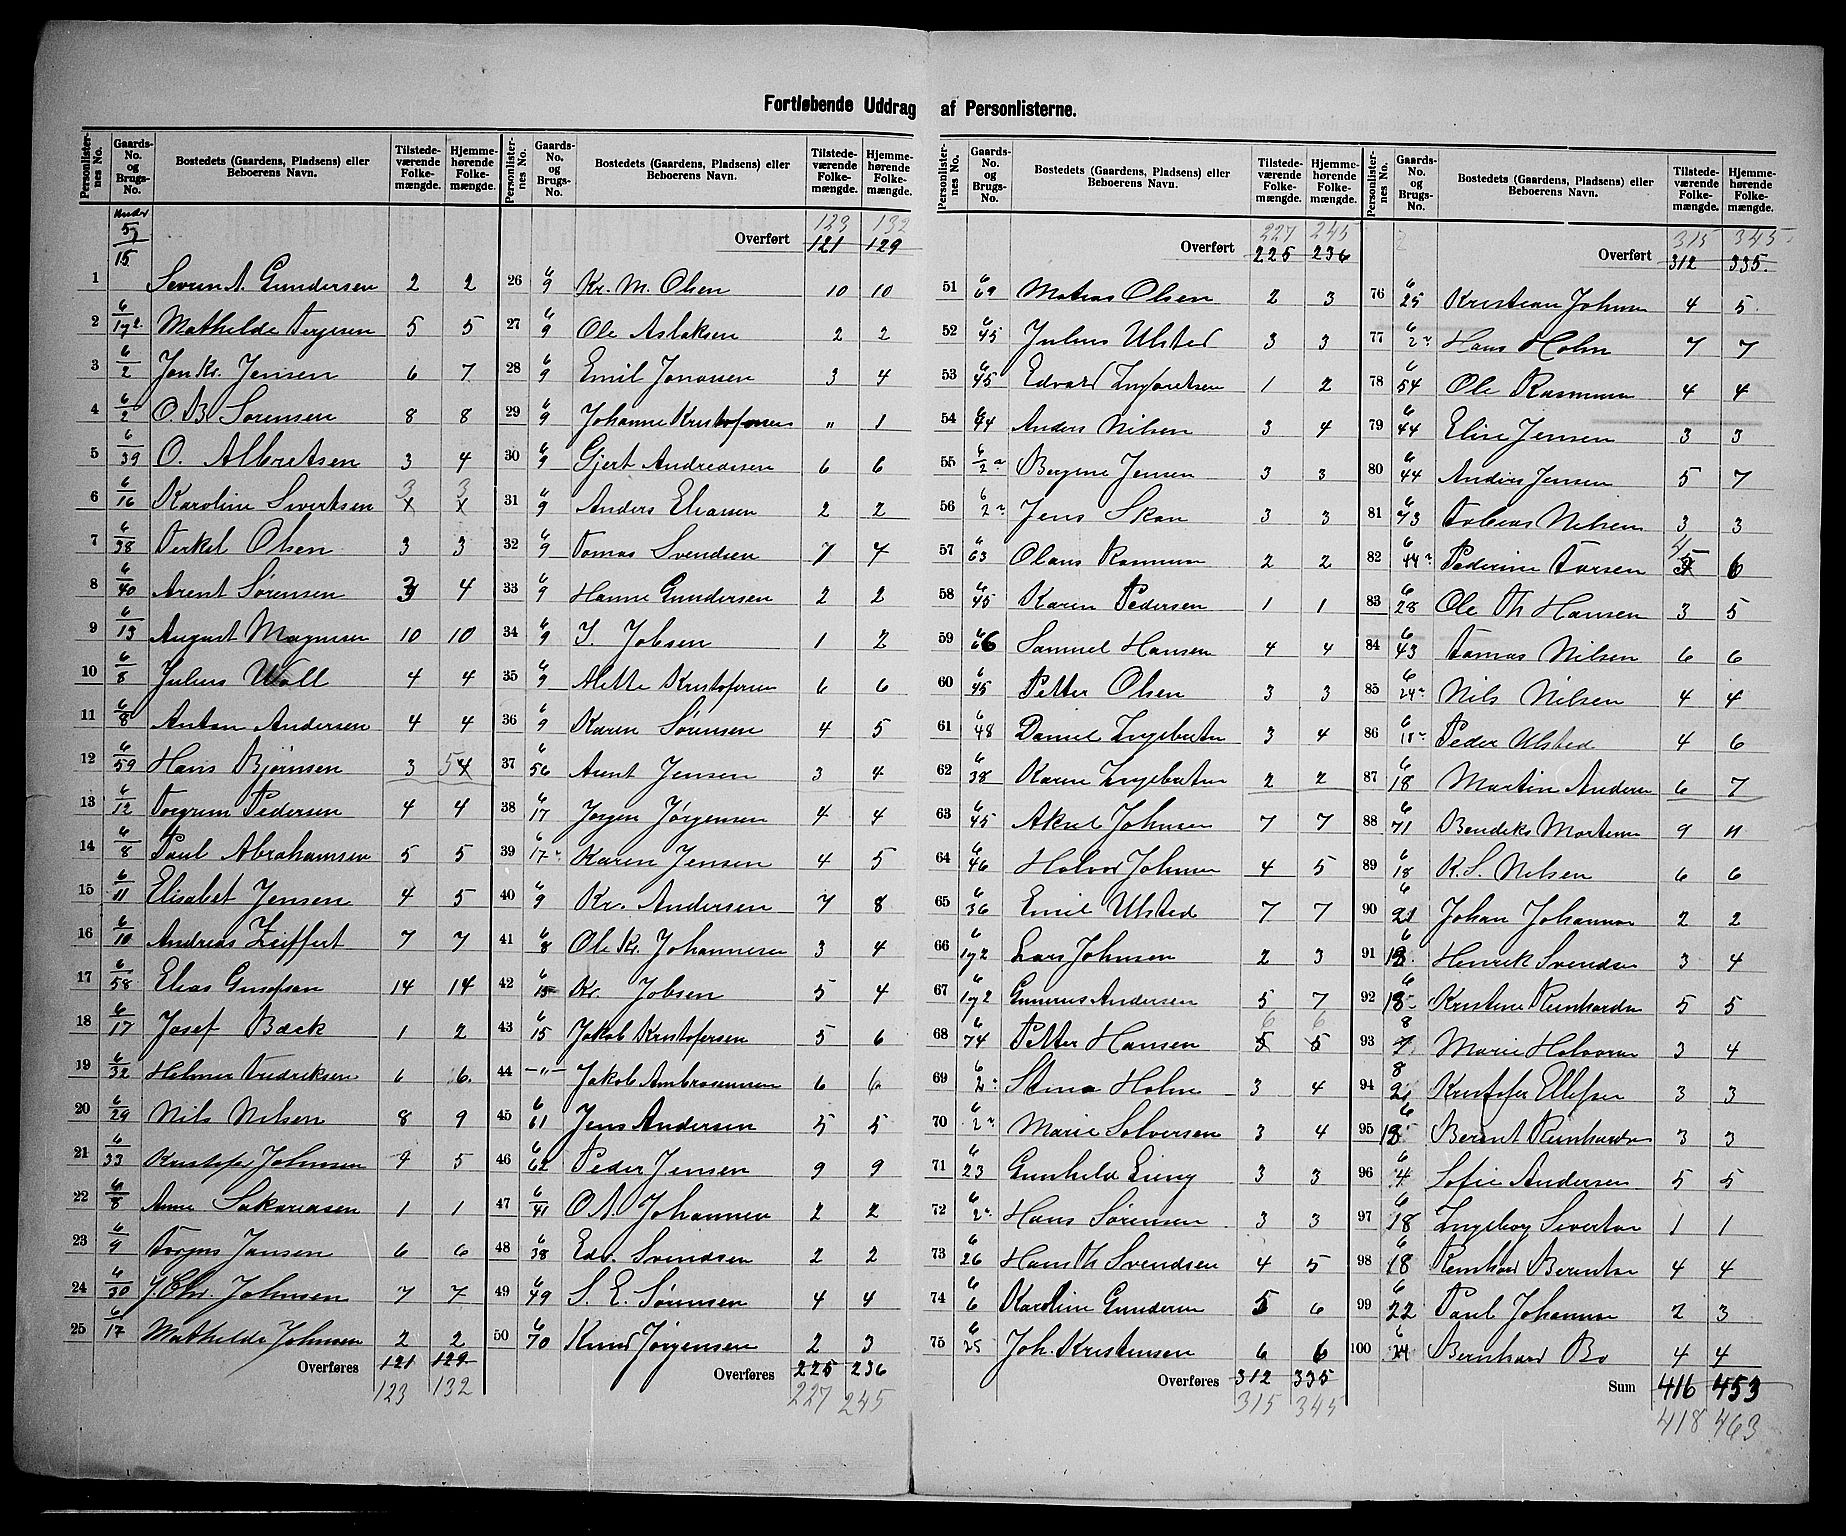 Fortløbende Uddrag af Personlisterne.
Personlister-nes No. Gaards-No. og Brugs-No. Bostedets (Gaardens, Pladsens) eller Beboerens Navn. Tilstede-værende Folke-mængde. Hjemme-hørende Folke-mængde.
1 5/15 Severin A. Gundersen 2 2
2 6/172 Mathilde Terjesen 5 5
3 6/2 Jon Kr. Jensen 6 7
4 6/2 O. B. Sørensen 8 8
5 6/39 O. Albretsen 3 4
6 6/16 Karoline Sivertsen 3 3
7 6/38 Terkel Olsen 3 3
8 6/40 Arent Sørensen 3 4
9 6/13 August Magnusen 10 10
10 6/8 Julius Woll 4 4
11 6/8 Anton Andersen 4 4
12 6/59 Hans Bjørnsen 3 5 4
13 6/12 Torgrim Pedersen 4 4
14 6/8 Paul Abrahamsen 5 5
15 6/11 Elisabet Jensen 4 5
16 6/10 Andreas Zeiffert 7 7
17 6/58 Elias Gustafsen 14 14
18 6/17 Josef Back 1 2
19 6/32 Helmer Fredriksen 6 6.
20 6/29 Nils Nelsen 8 9
21 6/33 Kristofer Johnsen 4 5
22 6/8 Anne Sakariasen 1 1
23 6/9 Torjus Jansen 6 6
24 6/30 J. Chr. Johnsen 7 7
25 6/17 Mathilde Johnsen 2 2
Overføres 121 129
123 132
Personlister-nes No. Gaards-No. og Brugs-No. Bostedets (Gaardens, Pladsens) eller Beboerens Navn. Tilstede-værende Folke-mængde. Hjemme-hørende Folke-mængde.
123 132
Overført 121 129
26 6/9 Kr. M. Olsen 10 10
27 6/9 Ole Aslaksen 2 2
28 6/9 Emil Jonassen 3 4
29 6/9 Johanne Kristofersen " 1
30 6/9 Gjert Andreassen 6 6
31 6/9 Anders Eliassen 2 2
32 6/9 Tomas Svendsen 7 7
33 6/9 Hanne Gundersen 2 2
34 6/9 I. Jobsen 1 2
35 6/9 Mette Kristofersen 6 6
36 6/9 Karen Sørensen 4 5
37 6/56 Arent Jensen 3 4
38 6/17 Jørgen Jørgensen 4 4
39 6/17 Karen Jensen 4 5
40 6/9 Kr. Andersen 7 8
41 6/8 Ole Kr. Johannesen 3 4
42 6/15 Kr. Jobsen 5 4
43 6/15 Jakob Kristofersen 5 6
44 —"— Jakob Ambrosiussen 6 6
45 6/61 Jens Andersen 5 5
46 6/62 Peder Jensen 9 9
47 6/41 O. A. Johannesen 2 2
48 6/38 Edv. Svendsen 2 2
49 6/49 S. E. Sørensen 4 4
50 6/70 Knud Jørgensen 2 3
Overføres 225 236
227 245
Personlister-nes No. Gaards-No. og Brugs-No. Bostedets (Gaardens, Pladsens) eller Beboerens Navn. Tilstede-værende Folke-mængde. Hjemme-hørende Folke-mængde.
227 245
Overført 225 236
51 6/69 Matias Olsen 2 3
52 6/45 Julius Ulsted 3 3
53 6/45 Edvard Ingbretsen 1 2
54 6/44 Anders Nilsen 3 4
55 6/2a Bergine Jensen 3 3
56 6/2a Jens Skau 3 3
57 6/63 Olaus Rasmussen 2 2
58 6/45 Karen Pedersen 1 1
59 6/66 Samuel Hansen 4 4
60 6/45 Petter Olsen 3 3
61 6/48 Daniel Ingebretsen 3 4
62 6/38 Karen Ingebretsen 2 2
63 6/45 Aksel Johnsen 7 7
64 6/46 Halvor Johnsen 4 5
65 6/36 Emil Ulsted 7 7
66 6/172 Lars Johnsen 2 3
67 6/172 Gunerius Andersen 5 7
68 6/74 Petter Hansen 5 5
6 6
69 6/2a Stina Holm 3 4
70 6/2a Marie Solversen 3 4
71 6/23 Gunhild Eieng 3 3
72 6/2a Hans Sørensen 3 3
73 6/26 Hans Th Svendsen 4 5
74 6/6 Karoline Gundersen 5 6
75 6/25 Joh. Kristensen 6 6
Overføres 312 335
315 345
Personlister-nes No. Gaards-No. og Brugs-No. Bostedets (Gaardens, Pladsens) eller Beboerens Navn. Tilstede-værende Folke-mængde. Hjemme-hørende Folke-mængde.
315 345
Overført 312 335.
76 6/25 Kristian Johnsen 4 5
77 6/2a Hans Holm 7 7
78 6/54 Ole Rasmussen 4 4
79 6/44 Elise Jensen 3 3
80 6/44 Anders Jensen 5 7
81 6/73 Tobias Nilsen 3 3
82 6/44 Pederine Larsen 4 6
83 6/28 Ole Th Hansen 3 5
84 6/43 Tomas Nilsen 6 6
85 6/24 Nils Nilsen 4 4
86 6/18 Peder Ulsted 4 6
87 6/18 Martin Andersen 6 7
88 6/71 Bendiks Mortensen 9 11
89 6/18 K. S. Nelsen 6 6
90 6/21 Johan Johannesen 2 2
91 6/18 Henrik Svendsen 3 4
92 6/18 Kristine Reinhardsen 5 5
93 8/7 Marie Halvorsen 3 4
94 8/21 Kristofer Ellefsen 3 3
95 6/18 Berent Reinhardsen 3 3
96 6/4 Sofie Andersen 5 5
97 6/18 Ingeborg Sivertsen 1 1
98 6/18 Reinhard Berentsen 4 4
99 6/22 Paul Johannesen 2 3
100 6/24 Bernhard Bo 4 4
Sum 416 453
418 463